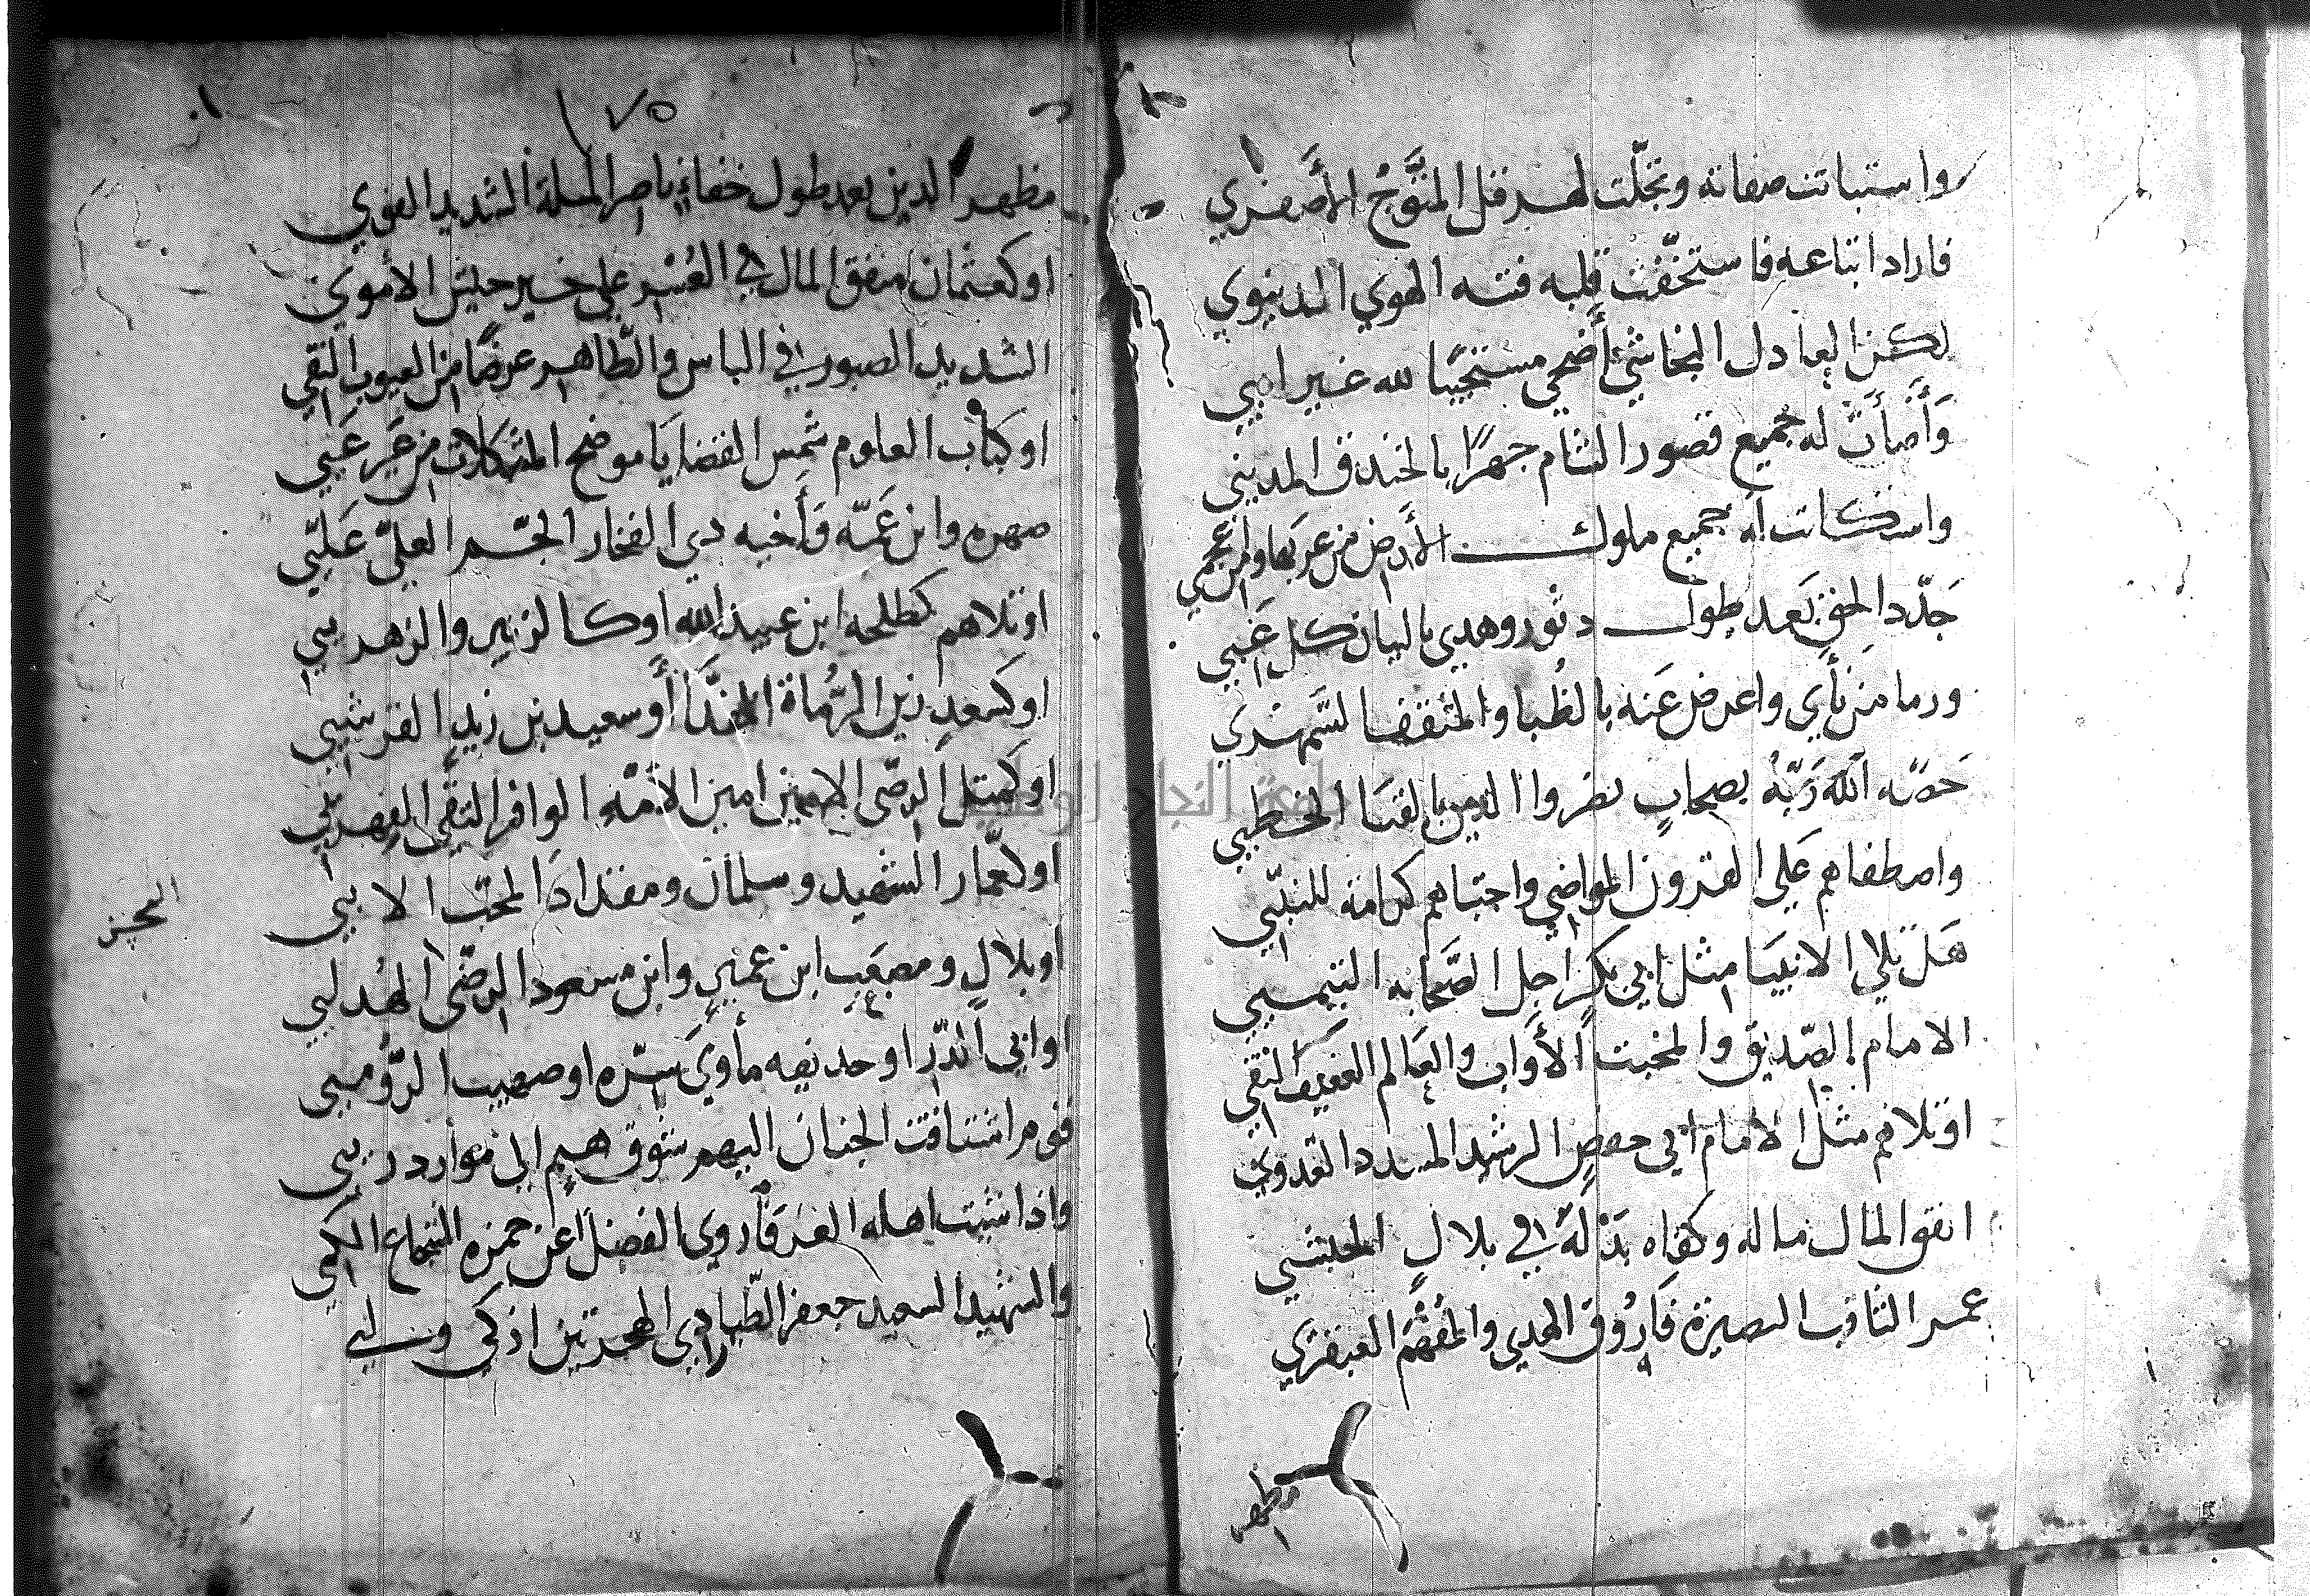 واستبانت صفاته وتجلّت لهرقل المتوَّج الأصفري
فاراد اتباعه فاستخفّت قلبه فتنه الهوي الدنيوي
لكن العادل النجاشي أضحي مستجيبًا لله غير ابيي
وَأضأت له جميع قصور الشام جهرًا بالخندق المديني
واستكانت له جميع ملوك الأرض من عربها ومن عجمي
جَدّد الحق بَعد طول دثور وهدي بالبيان كل غبي
ورما من نأي واعرض عَنه بالظُبا والمثقف السّمهَري
خَصّه اللّه رَبّهُ بصحابٍ نصروا الدين بالقنَا الخطيي
واصطفاهم عَلي القرون المواضي واجتباهم كرامة للنبيّي
هَل تلي الانبيَا مثل ابي بكرٍ اجل الصَّحابه التيمسيي
الامام الصّديق والمخبت الأوّاب والعَالم العفيف النقي
اوتلاهم مثل الامام ابي حفصٍ الرشيد المسدد العَدوي
انفق المال ماله وكفاه بَذْلهُ في بلالٍ الحبشيي
عمر الثاقب البصيرة فَارُوق الهدي والمُفهَّم العبقري
مظهر
١٧٥
مظهر الدين بعد طول خفاءٍ ناصر الملة الشديد القوي
اوكعثمان منفق المال في العُسْر علي خير جيش الأموي
الشديد الصبور في الباس والطّاهر عرضًا من العيوب النقي
اوكباب العلوم شمس القضايَا موضح المشكلات من غَير عَيي
صهره وابن عَمّه وَأخيه ذي الفخار الجَّم العليّ عَليّي
اوتلاهم كطلحه ابن عبيد اللّه اوكالزبير والزهريي
اوكسَعدٍ زين الرُّماة المفدّا أوسعيد بن زيد القرشيي
اوكمثل الرضّى الامين امين الأمّه الوافر التقي الفهري
اوكعّمار الشهيد وسلمان ومقدادَ المحبّ الابيي
اوبلالٍ ومصعَبٍ ابن عميرٍ وابن مسعود الرضّى الهُدليي
اوابي الدّر اوحديفه مأوي سَرّه اوصهيب الرّوميي
قوم اشتاقت الجنان اليهم شوق هيمٍ الي موارد ريي
واذا شيت اهله الغر فَاروي الفضل عن حمزه الشجاع الكمي
والشهيد السعيد جعفر الطّيار ذي الهجرتين اذكي وليي